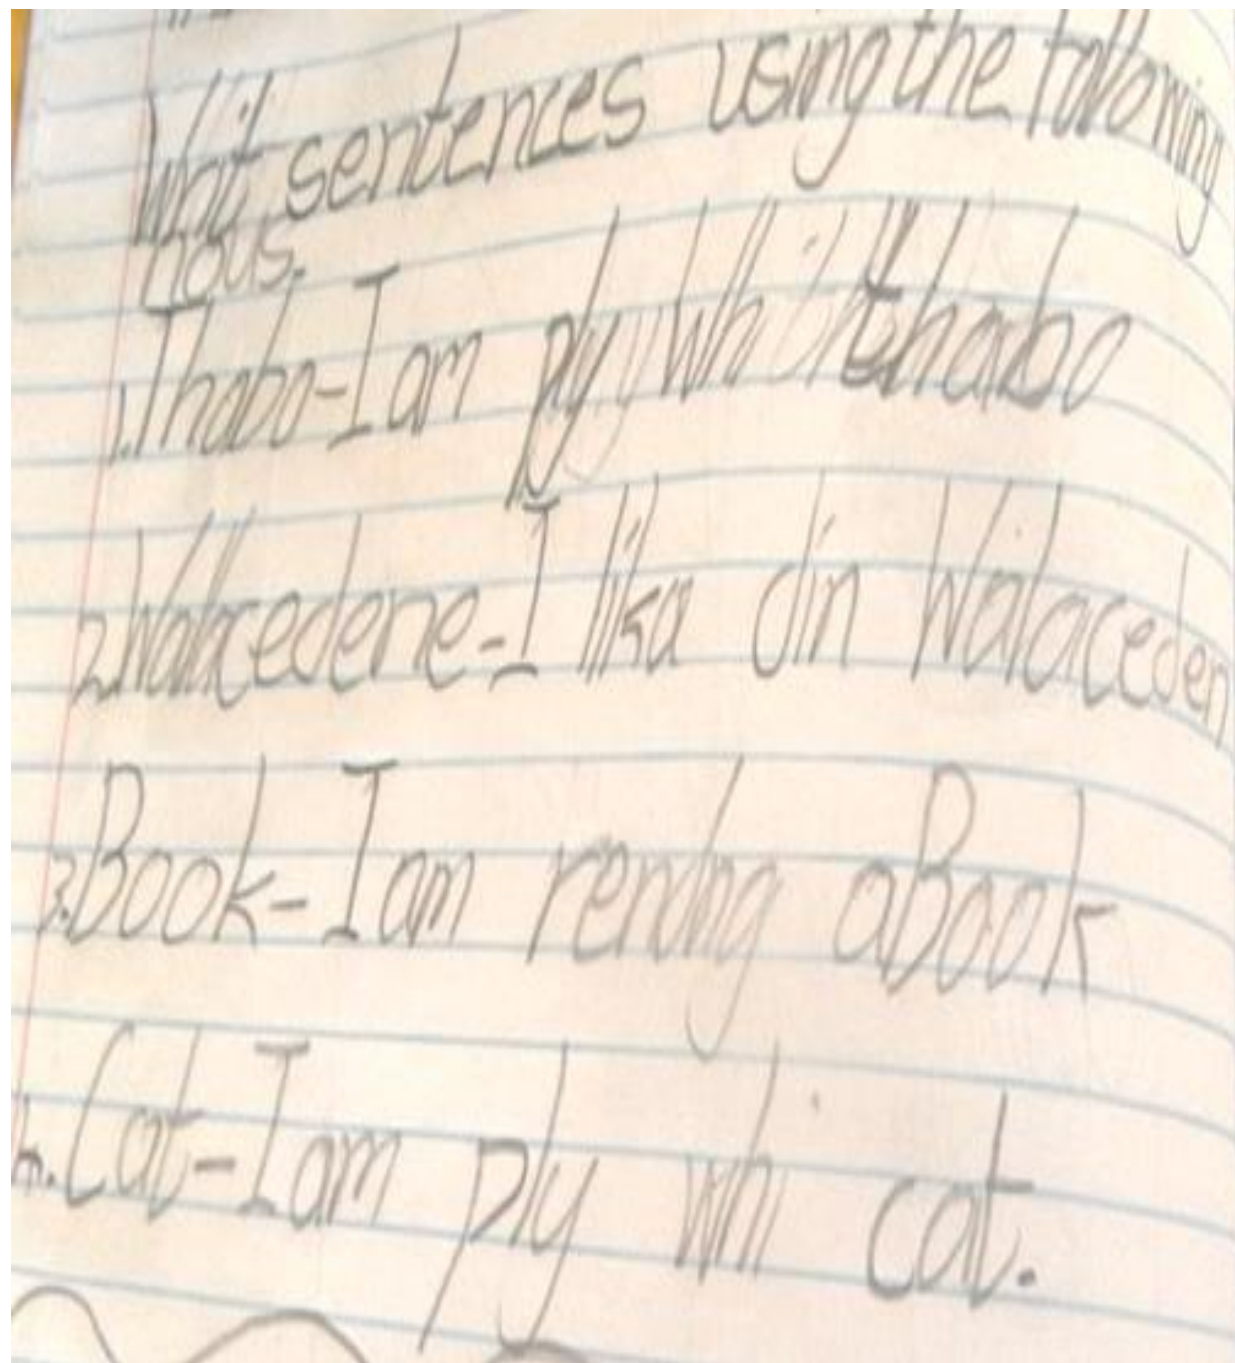 Writ sentences using the following
nous.
1. Thabo-I am ply whi thabo
2. Wallacedene-I lika din Walaceden
3. Book-I am rending a Book
4. Cat-I am ply whi cat.